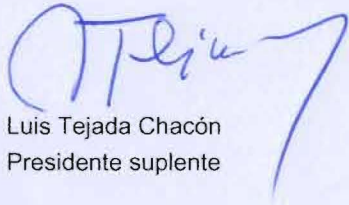 Luis Tejada Chacón
Presidente suplente